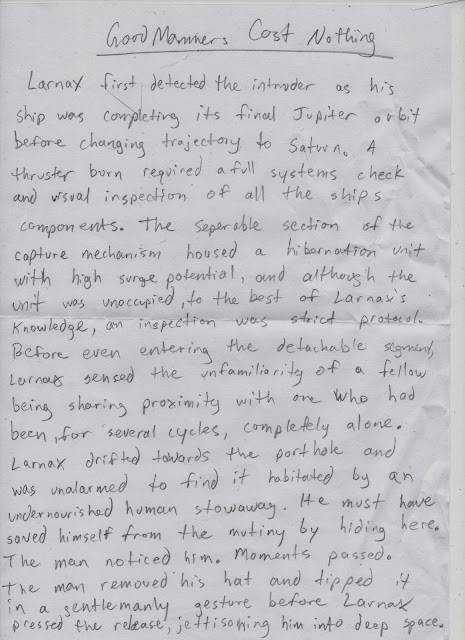 Good Manners Cost Nothing
Larnax first detected the intruder as his
ship was completing its final Jupiter orbit
before changing trajectory to Saturn. A
thruster burn required a full systems check
and visual inspection of all the ships
components. The seperable section of the
capture mechanism housed a hibernation unit
with high surge potential, and although the
unit was unoccupied, to the best of Larnax's
knowledge, an inspection was strict protocol.
Before even entering the detachable segment,
Larnax sensed the unfamiliarity of a fellow
being sharing proximity with one who had
been, for several cycles, completely alone.
Larnax drifted towards the porthole and
was unalarmed to find it habitated by an
undernourished human stowaway. He must have
saved himself from the mutiny by hiding here.
The man noticed him. Moments passed.
The man removed his hat and tipped it
in a gentlemanly gesture before Larnax
pressed the release, jettisoning him into deep space.